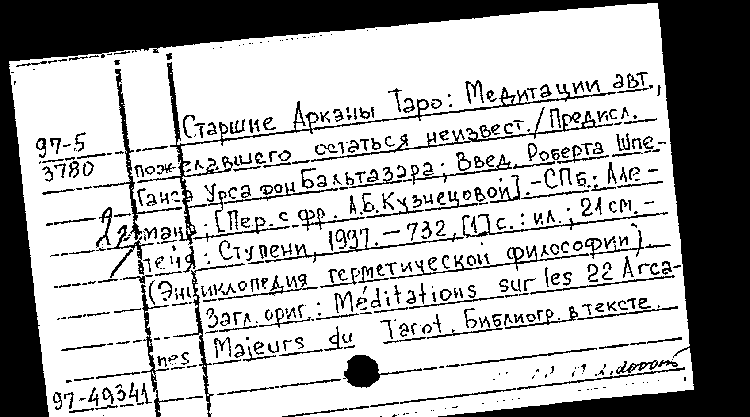 Старшие Арканы Таро: Медитации авт.,
97-5
3780
пожелавшего остаться неизвест./Предисл.
Ганса Урса фон Бальтазара; Введ. Роберта Шпе-
мана; [Пер. с фр. А.Б. Кузнецовой]. -СПб.: Але-
тейя: Ступени, 1997. – 732, [1] с. : ил.; 21 см. –
(Энциклопедия герметической философии).
Загл. ориг.: Méditations sur les 22 Arca-
nes Majeurs du Tarot. Библиогр. в тексте.
97-49341